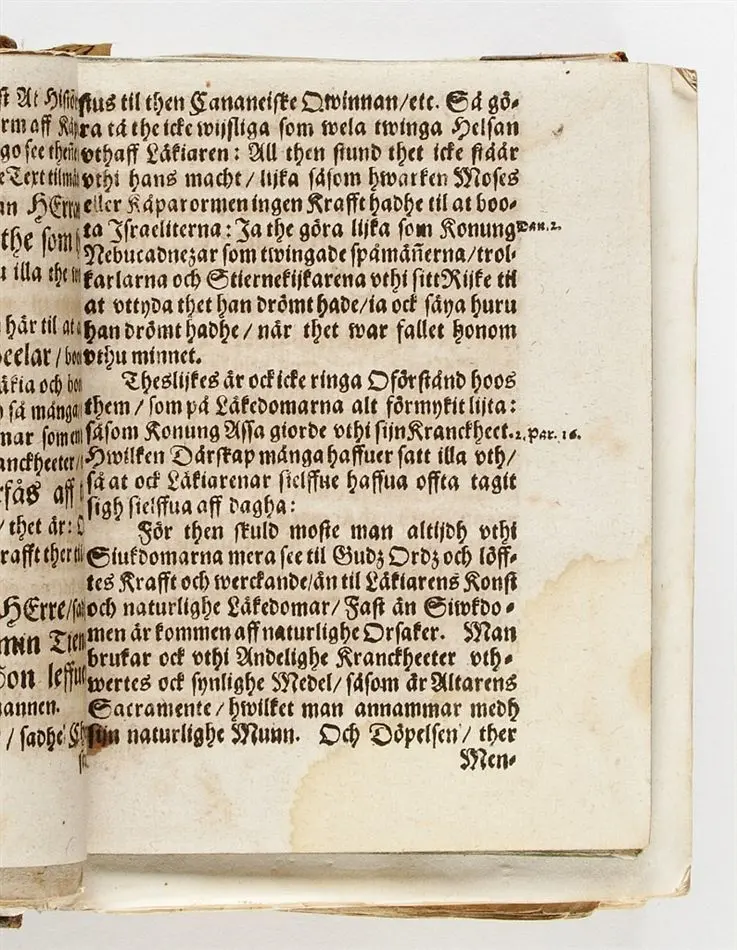 st At Histori
rm aff Kåp
go see then
e Text tilmä
an HErra
the som
u illa the
här til at
eelar / 
äkia och
så många
mar som
anckheeter/
fås aff
/ thet är:
rafft ther
HErre/
min Tien
Son leff
annen.
/ sadhe
stus til then Cananeiske Qwinnan/etc. Så gö-
ra tå the icke wijsliga som wela twinga Helsan
vthaff Läkiaren: All then stund thet icke ståår
vthi hans macht / lijka såsom hwarken Moses
eller Kåparormen ingen Krafft hadhe til at boo-
ta Israeliterna: Ja the göra lijka som Konung
Dan. 2.
Nebucadnezar som twingade spåmän̄erna/trol-
karlarna och Stiernekijkarena vthi sitt Rijke til
at vttyda thet han drömt hade/ia ock säya huru
han drömt hadhe / när thet war fallet honom
vthu minnet.
Theslijkes är ock icke ringa Oförstånd hoos
them / som på Läkedomarna alt förmykit lijta:
såsom Konung Assa giorde vthi sijn Kranckheet.
2. Par. 16.
Hwilken Dårskap många haffuer satt illa vth/
så at ock Läkiarenar sielffue haffua offta tagit
sigh sielffua aff dagha:
För then skuld moste man altijdh vthi
Siukdomarna mera see til Gudz Ordz och löff-
tes Krafft och werckande/än til Läkiarens Konst
och naturlighe Läkedomar/ Fast än Siwkdo-
men är kommen aff naturlighe Orsaker. Man
brukar ock vthi Andelighe Kranckheeter vth-
wertes ock synlighe Medel/ såsom är Altarens
Sacramente / hwilket man annammar medh
sijn naturlighe Munn. Och Döpelsen/ ther
Men-